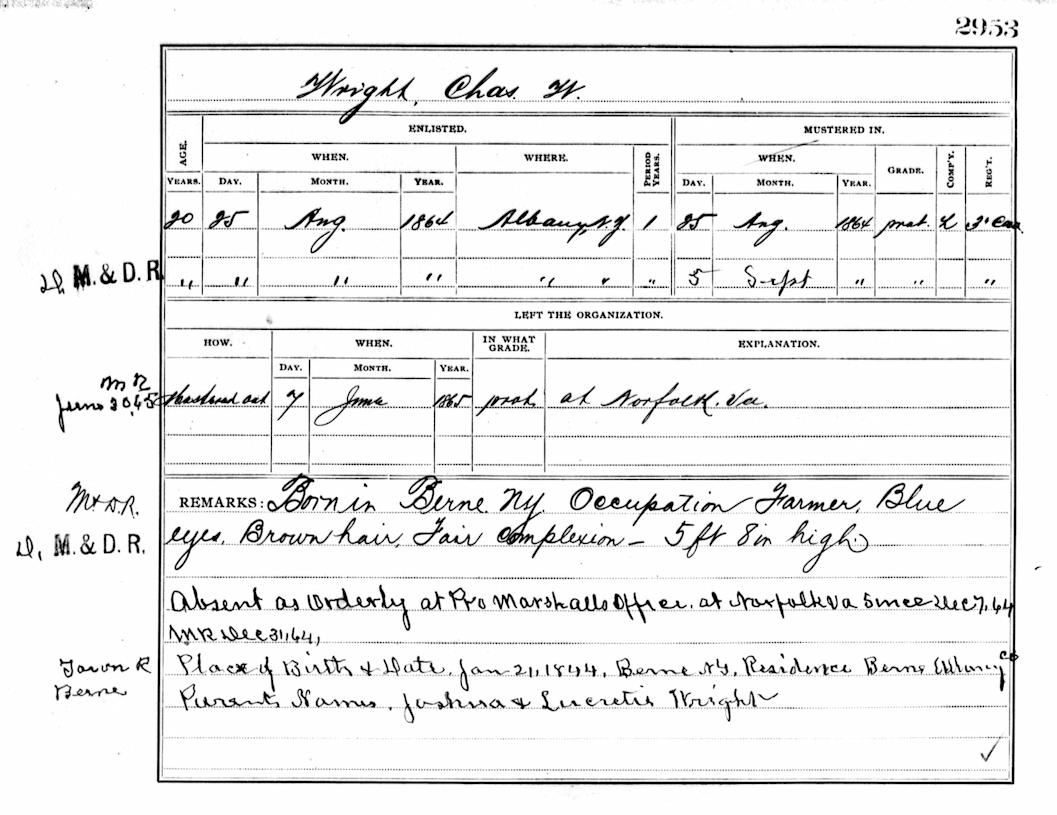 2953
Wright, Chas. W.
AGE. ENLISTED. MUSTERED IN.
WHEN. WHERE. PERIOD YEARS. WHEN. GRADE. COMP'Y. REG'T.
YEARS. DAY. MONTH. YEAR. DAY. MONTH. YEAR.
20 25 Aug. 1864 Albany, N.Y. 1 25 Aug. 1864 privt. L
M. & D. R. " " " " " " " 5 Sept " " " "
LEFT THE ORGANIZATION.
HOW. WHEN. IN WHAT GRADE. EXPLANATION.
DAY. MONTH. YEAR.
M R
June 30,
Mustered out 7 June 1865 privt. at Norfolk. Va.
M & D.R. REMARKS: Born in Berne. N.Y. Occupation Farmer. Blue
M. & D. R. eyes. Brown hair. Fair Complexion – 5 ft 8 in high.
Absent as Orderly at Pro Marshalls Office. at Norfolk Va Since Dec 7, 64
M R Dec 31, 64,
Town R Place of Birth & Date. Jan 21, 1844. Berne N.Y. Residence Berne Albany Co
Berne Parents Names. Joshua & Lucretia Wright